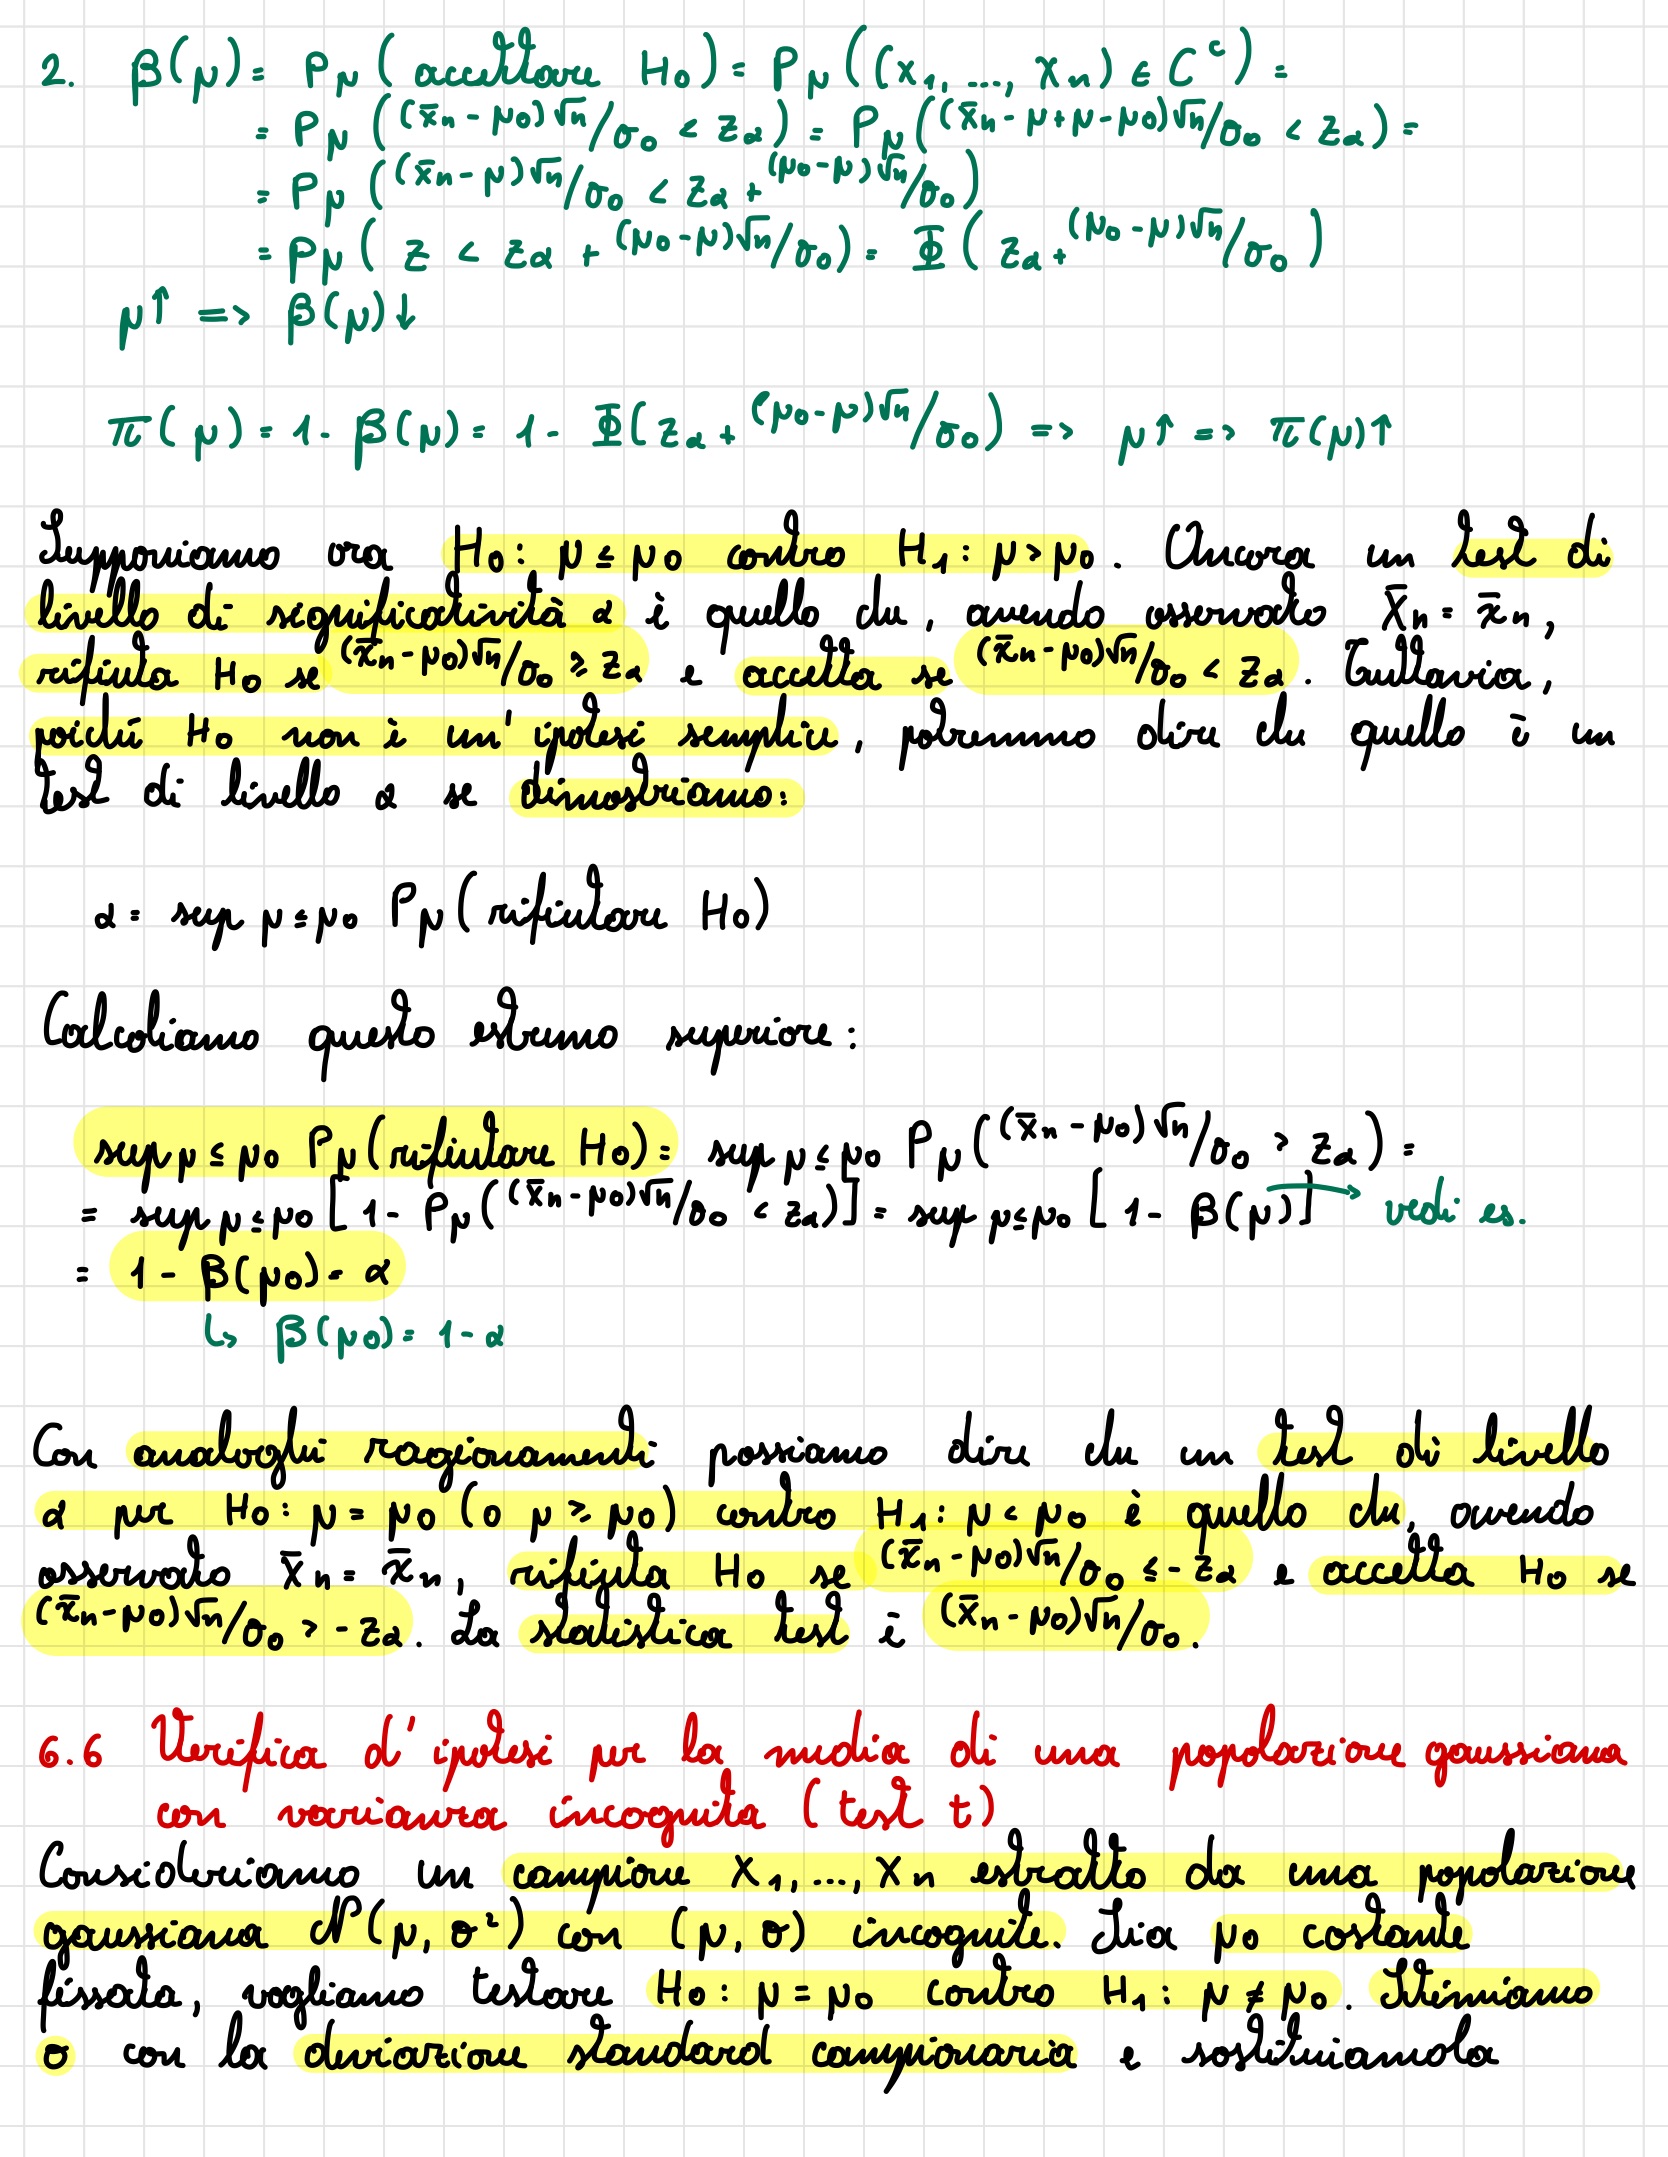 2. β(μ) = Pμ (accettare H₀) = Pμ ((X₁, ..., Xₙ) ∈ Cᶜ) =
= Pμ ((X̄ₙ - μ₀)√n/σ₀ < zα) = Pμ ((X̄ₙ - μ + μ - μ₀)√n/σ₀ < zα) =
= Pμ ((X̄ₙ - μ)√n/σ₀ < zα + (μ₀ - μ)√n/σ₀)
= Pμ (Z < zα + (μ₀ - μ)√n/σ₀) = Φ (zα + (μ₀ - μ)√n/σ₀)
μ↑ => β(μ)↓
π(μ) = 1 - β(μ) = 1 - Φ(zα + (μ₀ - μ)√n/σ₀) => μ↑ => π(μ)↑
Supponiamo ora H₀: μ ≤ μ₀ contro H₁: μ > μ₀. Ancora un test di
livello di significatività α è quello che, avendo osservato X̄ₙ = x̄ₙ,
rifiuta H₀ se (x̄ₙ - μ₀)√n/σ₀ ≥ zα e accetta se (x̄ₙ - μ₀)√n/σ₀ < zα. Tuttavia,
poiché H₀ non è un'ipotesi semplice, potremmo dire che quello è un
test di livello α se dimostriamo:
α = sup μ ≤ μ₀ Pμ (rifiutare H₀)
Calcoliamo questo estremo superiore:
sup μ ≤ μ₀ Pμ (rifiutare H₀) = sup μ ≤ μ₀ Pμ ((X̄ₙ - μ₀)√n/σ₀ > zα) =
= sup μ ≤ μ₀ [1 - Pμ ((X̄ₙ - μ₀)√n/σ₀ < zα)] = sup μ ≤ μ₀ [1 - β(μ)] → vedi es.
= 1 - β(μ₀) = α
↳ β(μ₀) = 1 - α
Con analoghi ragionamenti possiamo dire che un test di livello
α per H₀: μ = μ₀ (o μ ≥ μ₀) contro H₁: μ < μ₀ è quello che, avendo
osservato X̄ₙ = x̄ₙ, rifiuta H₀ se (x̄ₙ - μ₀)√n/σ₀ ≤ - zα e accetta H₀ se
(x̄ₙ - μ₀)√n/σ₀ > - zα. La statistica test è (X̄ₙ - μ₀)√n/σ₀.
6.6 Verifica d'ipotesi per la media di una popolazione gaussiana
con varianza incognita (test t)
Consideriamo un campione X₁, ..., Xₙ estratto da una popolazione
gaussiana N(μ, σ²) con (μ, σ) incognite. Sia μ₀ costante
fissata, vogliamo testare H₀: μ = μ₀ contro H₁: μ ≠ μ₀. Stimiamo
σ con la deviazione standard campionaria e sostituiamola